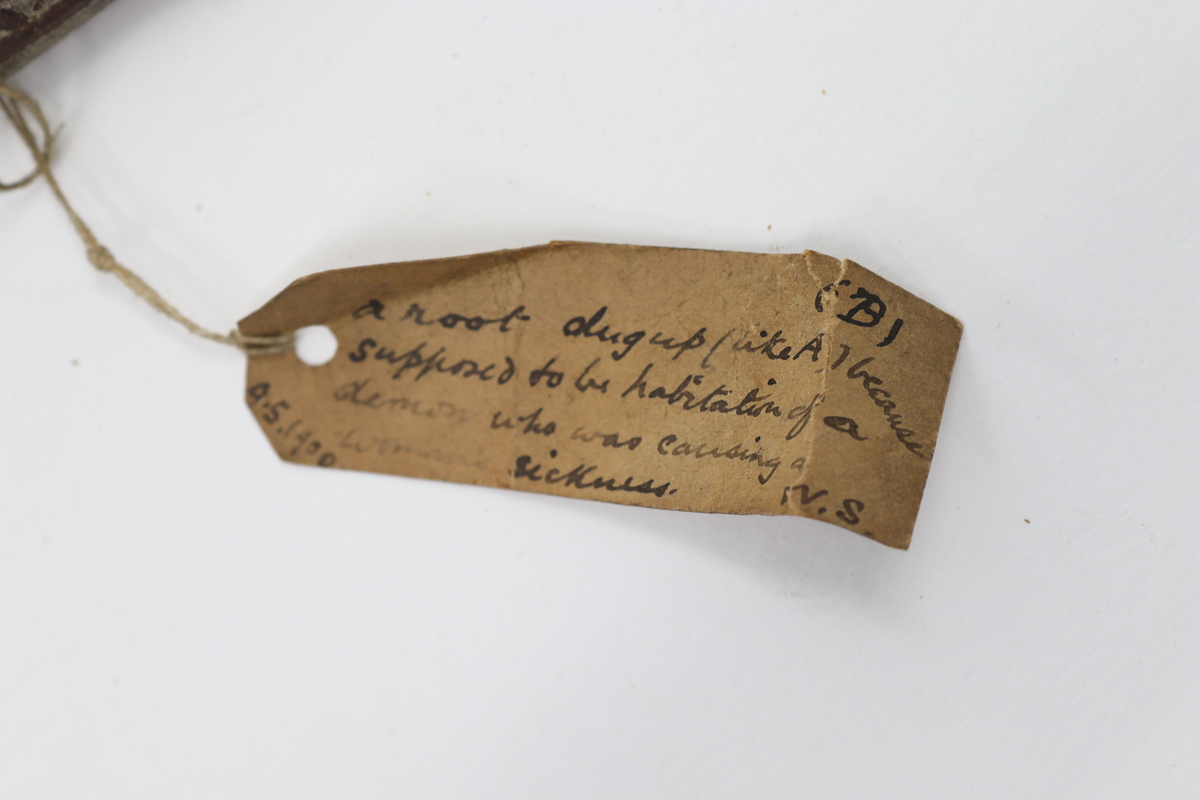 (B)
a root dug up (like A) because
supposed to be habitation of a
demon who was causing a
woman's sickness.
N.S.